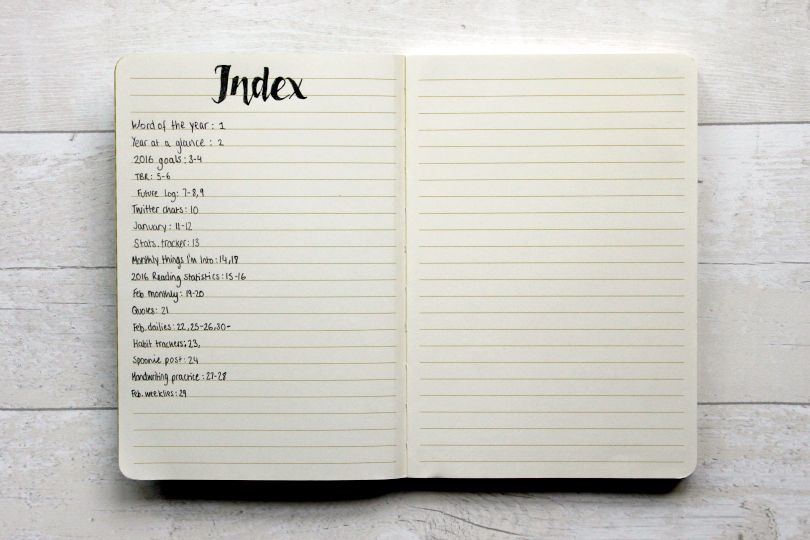 Index
Word of the year: 1
Year at a glance: 2
2016 goals: 3-4
TBR: 5-6
Future Log: 7-8,9
Twitter chats: 10
January: 11-12
Stats. tracker: 13
Monthly things I'm into: 14,18
2016 Reading statistics: 15-16
Feb monthly: 19-20
Quotes: 21
Feb. dailies: 22,25-26,30-
Habit trackers: 23,
Spoonie post: 24
Handwriting practice: 27-28
Feb. weeklies: 29